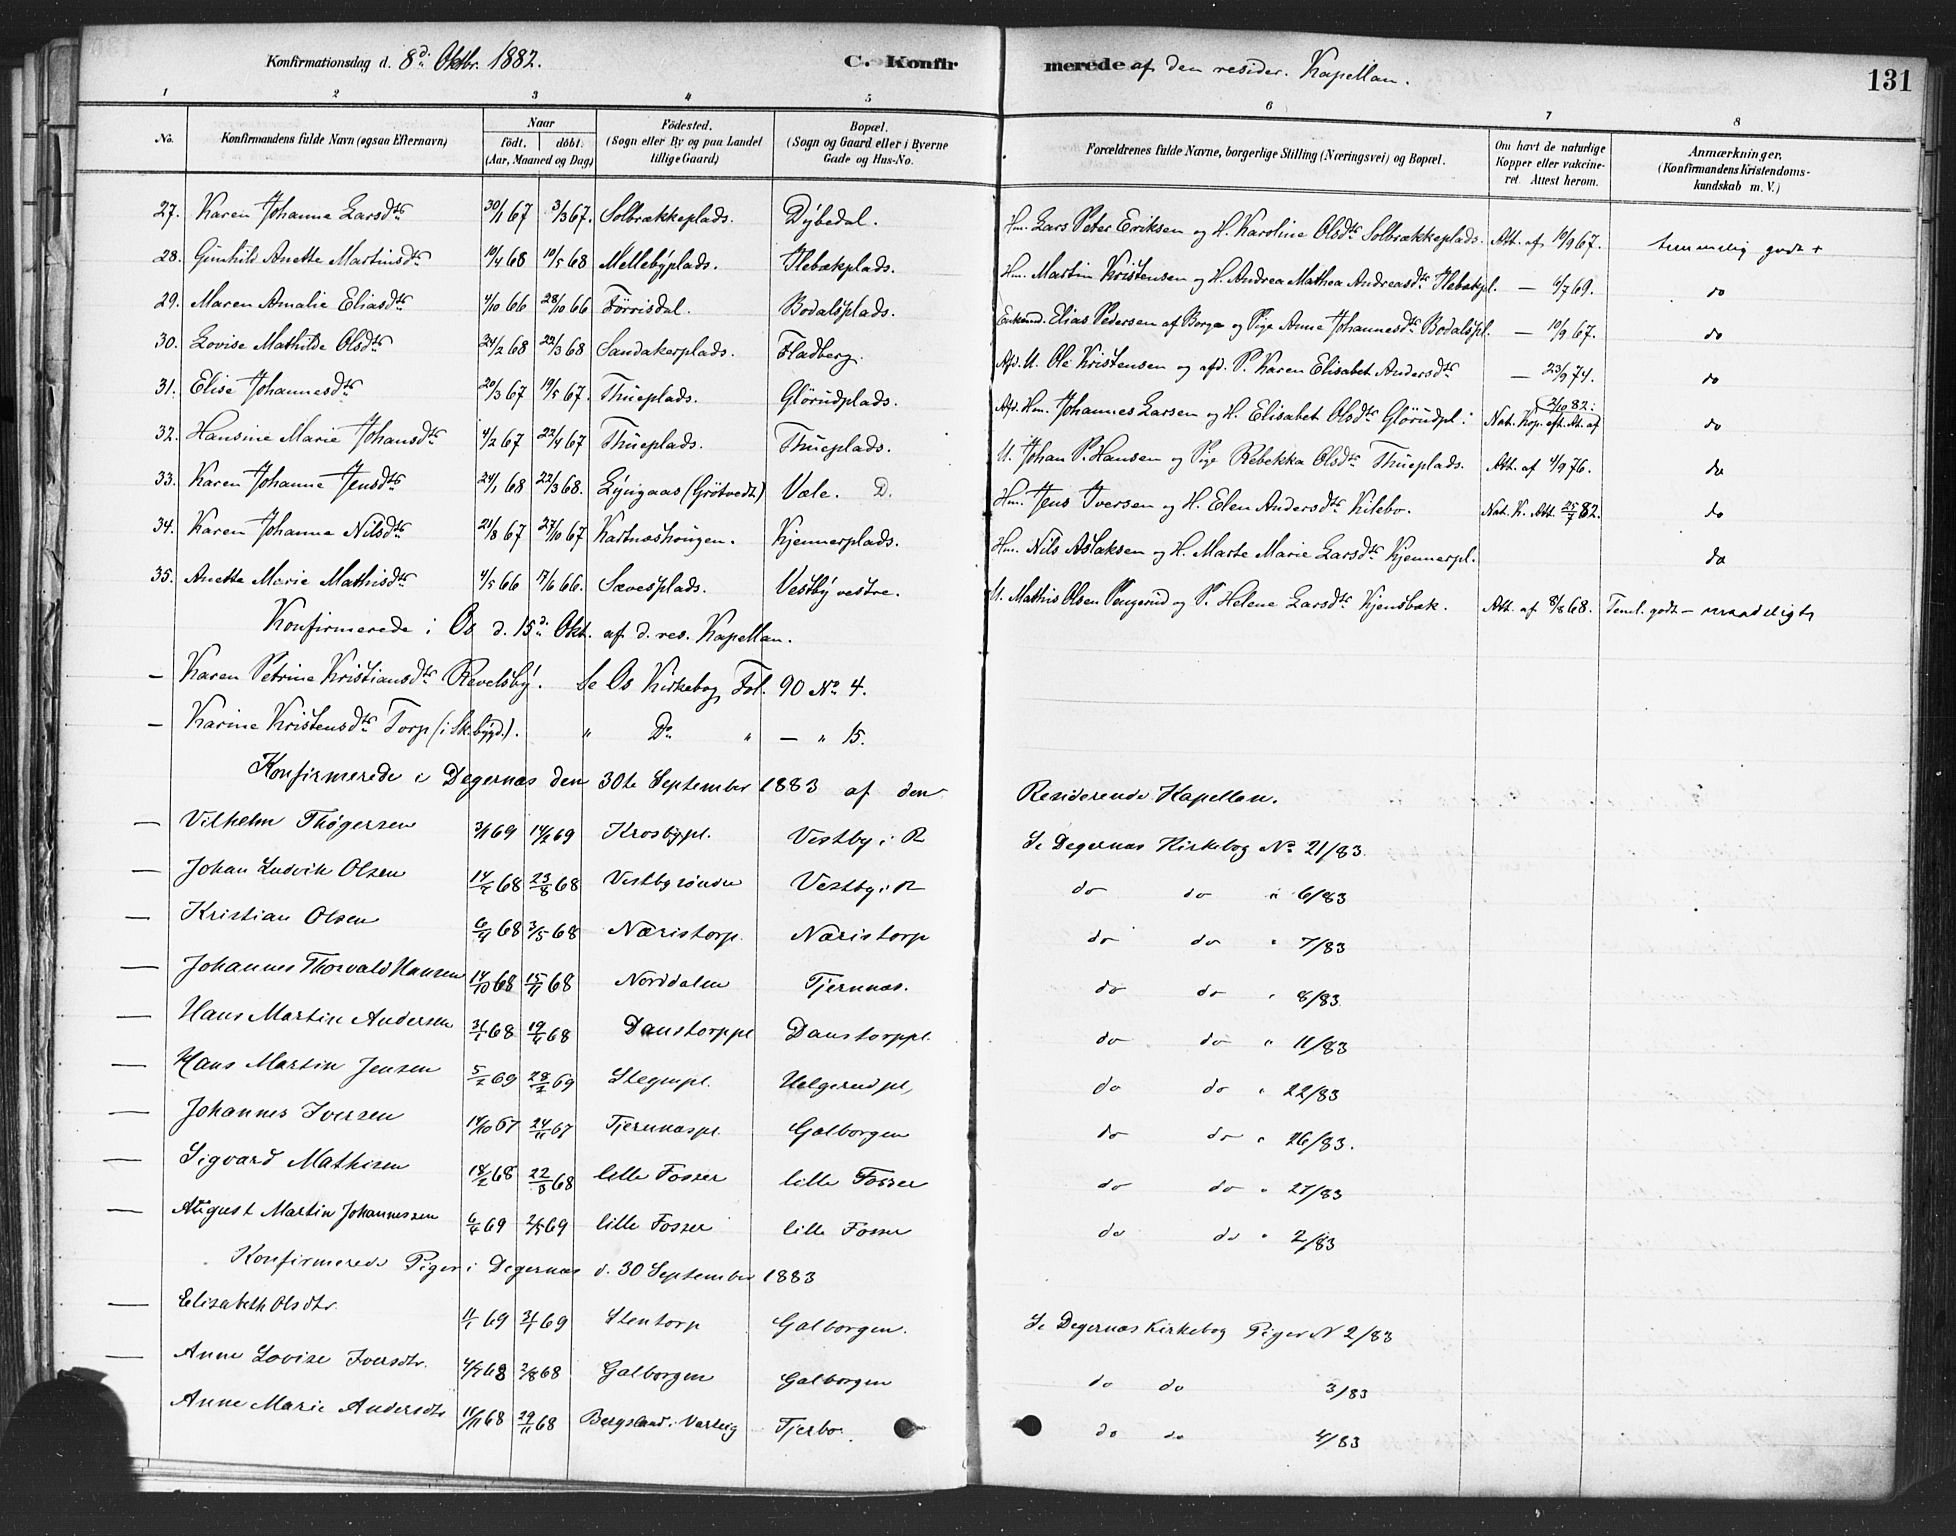 Konfirmationsdag d. 8d. Oktbr. 1882. C. Konfirmerede af den resider. Kapellan. 131
1 2 3 4 5 6 7 8
No. Konfirmandens fulde Navn (ogsaa Efternavn) Naar Födt. döbt. (Aar, Maaned og Dag) Födested. (Sogn eller By og paa Landet tillige Gaard) Bopæl. (Sogn og Gaard eller i Byerne Gade og Hus-No. Forældrenes fulde Navne, borgerlige Stilling (Næringsvei) og Bopæl. Om havt de naturlige Kopper eller vakcineret. Attest herom. Anmærkninger. (Konfirmandens Kristendomskundskab m. V.)
27. Karen Johanne Larsdtr 30/1 67 3/3 67. Solbrækkeplads. Dybedal. Hm. Lars Peter Eriksen og H. Karoline Olsdtr Solbrækkeplads. Att. af 10/9 67. temmelig godt +
28. Gunhild Anette Martinsdtr 19/4 68 19/5 68 Mellebyplads. Ilebækplads. Hm. Martin Kristensen og H. Andrea Mathea Andreasdtr Ilebækpl. — 6/7 69. do
29. Maren Amalie Eliasdtr 4/10 66 28/10 66 Törrisdal. Bodalsplads. Enkemd. Elias Pedersen af Borge og Pige Anne Johannesdtr Bodalspl. — 10/9 67. do
30. Lovise Mathilde Olsdtr 24/2 68 22/3 68 Sandakerplads. Fladberg. Afd. U. Ole Kristensen og afd. P. Karen Elisabet Andersdtr — 23/9 74. do
31. Elise Johannesdtr 20/3 67 19/5 67. Thueplads. Glörudplads. Afd. Hm. Johannes Larsen og H. Elisabet Olsdtr Glörudpl: Nat. Kop. eft. At. af 2/10 82. do
32. Hansine Marie Johansdtr 4/2 67 22/4 67 Thueplads. Thueplads. U. Johan P. Hansen og Pige Rebekka Olsdtr Thueplads. Att. af 4/9 76. do
33. Karen Johanne Jensdtr 24/1 68 22/3 68. Lyngaas (Grötvedt) Væle. D. Hm. Jens Iversen og H. Elen Andersdtr Kilebo. Nat. K. Att. 25/7 82. do
34. Karen Johanne Nilsdtr 21/8 67 27/10 67 Kartnæshougen. Kjennerplads. Hm. Nils Aslaksen og H. Marte Marie Larsdtr Kjennerpl. do
35. Anette Marie Mathisdtr 4/5 66 17/6 66. Sævesplads. Vestby vestre. U. Mathis Olsen Pengerud og P. Helene Larsdtr Kjensbæk. Att. af 8/8 68. Teml. godt — maadeligt
Konfirmerede i Os d. 15d. Okt. af d. res. Kapellan.
— Karen Petrine Kristiansdtr Revelsby. Se Os Kirkebog Fol. 90 No 4.
— Karine Kristensdtr Torp (i Skbygd.). " Do " — " 15.
Konfirmerede i Degernæs den 30te September 1883 af den Residerende Kapellan.
— Vilhelm Thøgersen 3/1 69 14/2 69 Krosbypl. Vestby i R Se Degernæs Kirkebog No 21/83.
— Johan Ludvik Olsen 14/7 68 23/8 68 Vestbyrønden Vestby i R do do " 6/83
— Kristian Olsen 6/4 68 3/5 68 Næristorp. Næristorp do do " 7/83
— Johannes Thorvald Hansen 14/10 68 15/11 68 Norddalen Tjernnæs. do do " 8/83
— Hans Martin Andersen 31/1 68 19/4 68 Danstorppl Danstorppl. do do " 11/83
— Hans Martin Jensen 5/2 69 28/2 69 Stegnpl. Helgerudpl, do do " 22/83
— Johannes Iversen 14/10 67 24/11 67 Tjernnæspl. Galborgen do do " 26/83.
— Sigvard Mathisen 18/2 68 22/3 68 lille Fosser lille Fosser do do " 27/83
— August Martin Johannessen 6/4 69 2/5 69 lille Fosser lille Fosser do do " 2/83
Konfirmerede Piger i Degernæs d. 30 September 1883
— Elizabeth Olsdtr. 11/1 69 31/1 69 Stentorp Galborgen. Se Degernæs Kirkebog Piger N 2/83
— Anne Lovise Iversdtr. 4/7 68 2/8 68 Galborgen Galborgen do do 3/83
— Anne Marie Andersdtr 11/11 68 29/11 68 Bergsland i Varteig Tjerbo. do do 4/83